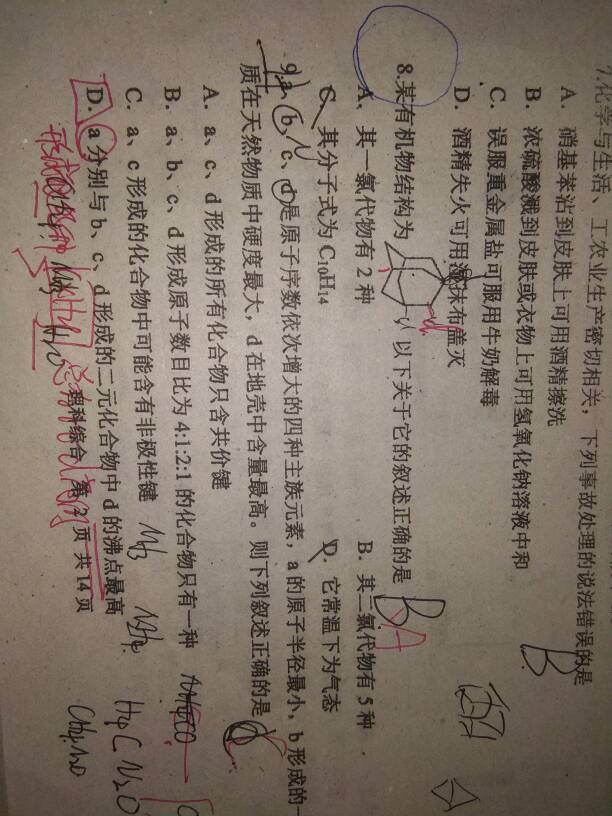 7.化学与生活、工农业生产密切相关，下列事故处理的说法错误的是 B
A. 硝基苯沾到皮肤上可用酒精擦洗
B. 浓硫酸溅到皮肤或衣物上可用氢氧化钠溶液中和
C. 误服重金属盐可服用牛奶解毒
D. 酒精失火可用湿抹布盖灭
8.某有机物结构为 以下关于它的叙述正确的是 B A
A、其一氯代物有 2 种 B. 其二氯代物有 5 种
C. 其分子式为 C₁₀H₁₄ D. 它常温下为气态
9.a、b、c、d 是原子序数依次增大的四种主族元素，a 的原子半径最小，b 形成的一
质在天然物质中硬度最大，d 在地壳中含量最高。则下列叙述正确的是
A. a、c、d 形成的所有化合物只含共价键
B. a、b、c、d 形成原子数目比为 4:1:2:1 的化合物只有一种
C. a、c 形成的化合物中可能含有非极性键 NH₃
D. a 分别与 b、c、d 形成的二元化合物中 d 的沸点最高
理科综合 第 2 页 共 14 页
H₄CN₂O